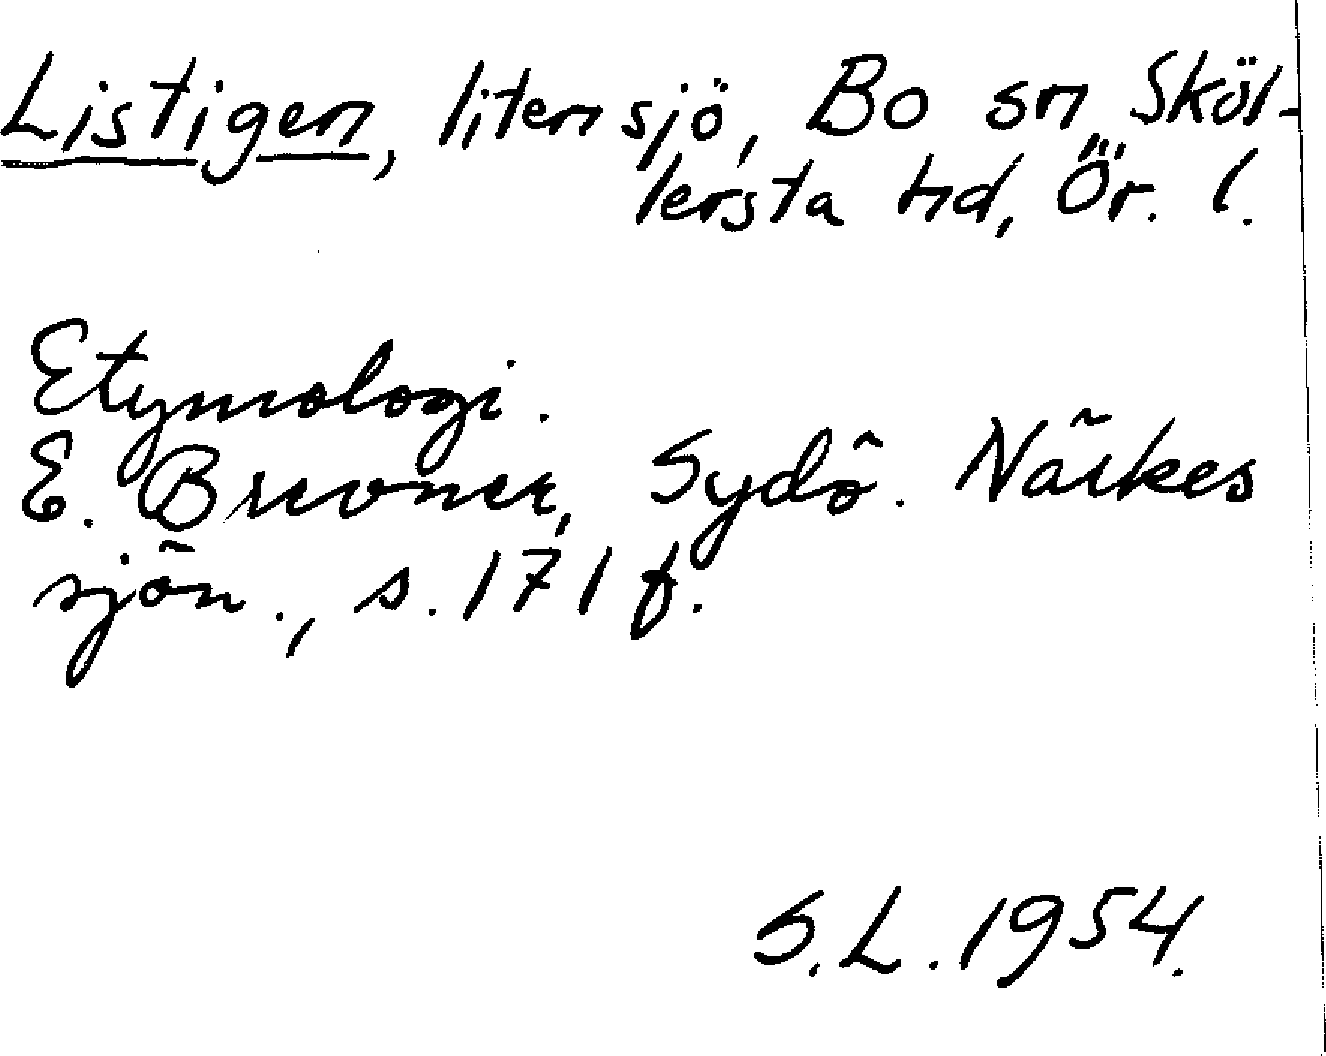 Listigen, liten sjö, Bo sn, Sköl-
lersta hd, Ör. l.
Etymologi.
E. Brevner, Sydö. Närkes
sjön., s. 171 f.
S.L. 1954.